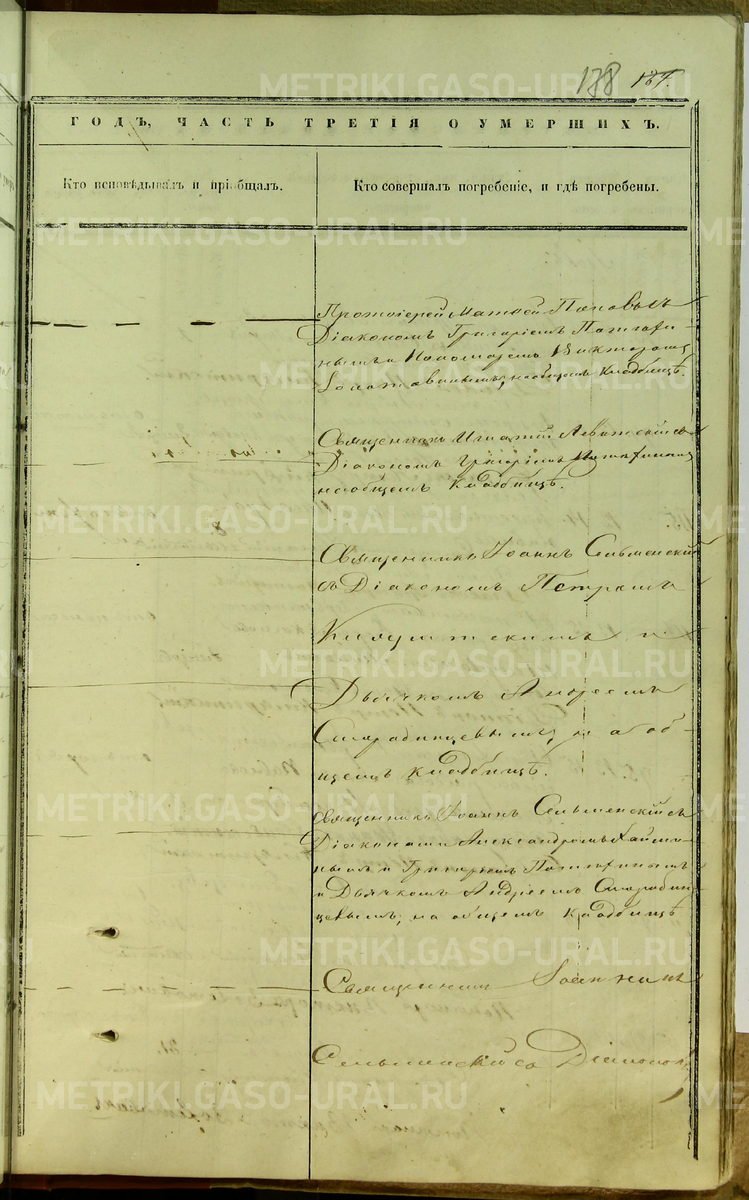 138 137.
METRIKI.GASO-URAL.RU
ГОДЪ, ЧАСТЬ ТРЕТІЯ О УМЕРШИХЪ.
Кто исповѣдывалъ и пріобщалъ.
Кто совершалъ погребеніе, и гдѣ погребены.
Протоіерей Матѳей Поповъ съ
Діакономъ Григоріемъ
и Пономаремъ Викторомъ
на общемъ Кладбищѣ.
Священникъ Игнатій Левитскій съ
Діакономъ Григоріемъ
на общемъ Кладбищѣ.
Священникъ Іоаннъ Сельменскій
съ Діакономъ Петромъ
и
Дьячкомъ Андреемъ
Стародинцевымъ, на об-
щемъ Кладбищѣ.
Священникъ Іоаннъ Сельменскій съ
Діаконами Александромъ
и Григоріемъ
и Дьячкомъ Андреемъ Стародин-
цевымъ, на общемъ Кладбищѣ
Священникъ Іоаннъ
Сельменскій со Діакономъ